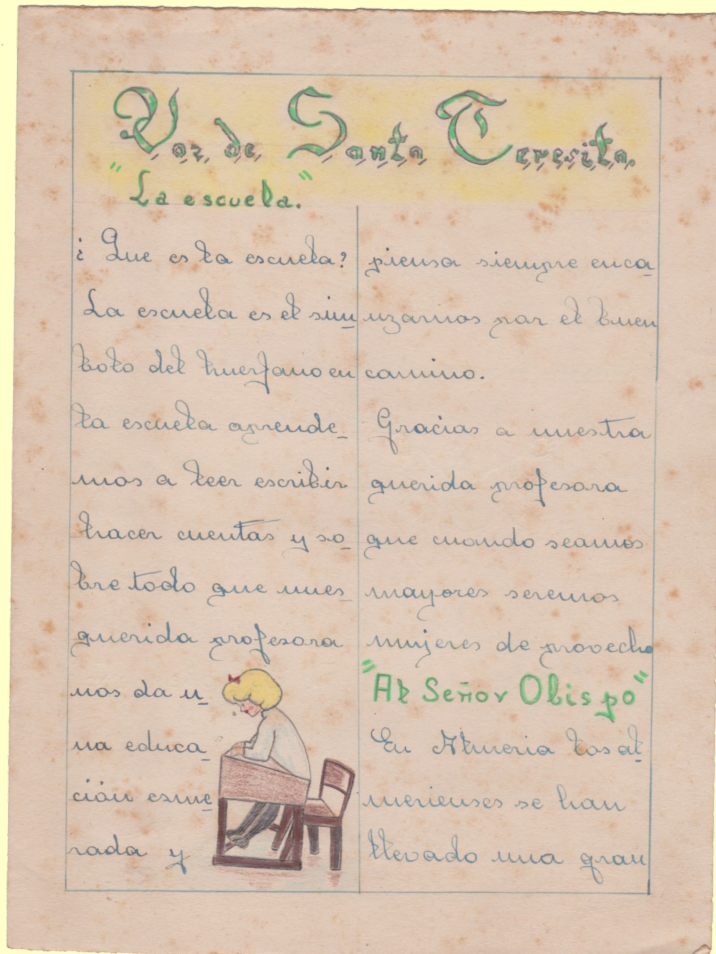 Voz de Santa Teresita
"La escuela."
¿Que es la escuela?
La escuela es el sim
bolo del huerfano en
la escuela aprende_
mos a leer escribir
hacer cuentas y so_
bre todo que nues_
querida profesora
nos da u_
na educa_
ción esme_
rada y
piensa siempre enca_
uzarnos por el buen
camino.
Gracias a nuestra
querida profesora
que cuando seamos
mayores seremos
mujeres de provecho
"Al Señor Obispo"
En Almeria los al_
merienses se han
llevado una gran